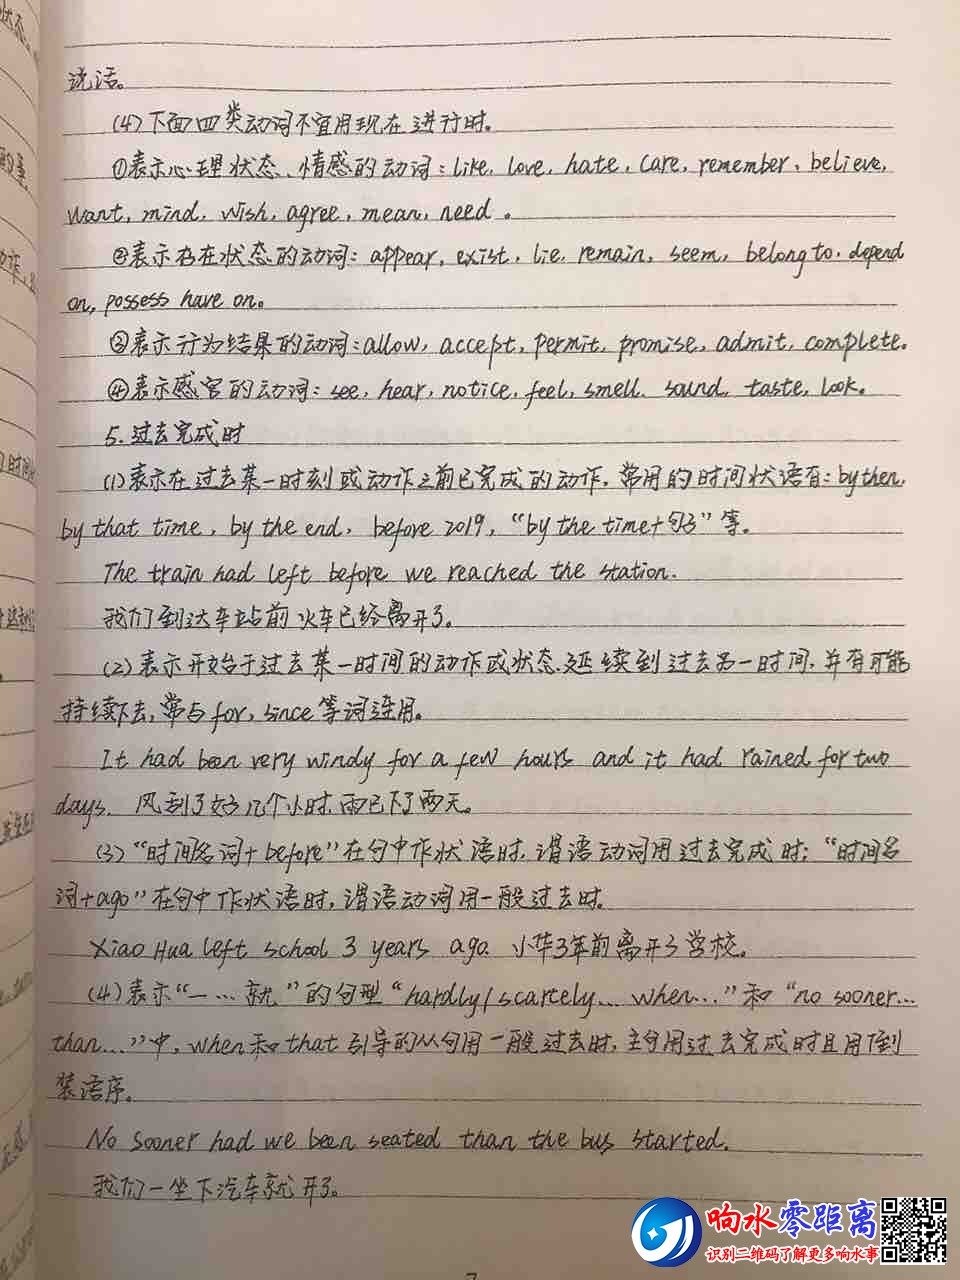 说话。
(4)下面四类动词不宜用现在进行时。
①表示心理状态、情感的动词：like, love, hate, care, remember, believe,
want, mind, wish, agree, mean, need。
②表示存在状态的动词：appear, exist, lie, remain, seem, belong to, depend
on, possess have on。
③表示行为结果的动词：allow, accept, permit, promise, admit, complete。
④表示感官的动词：see, hear, notice, feel, smell, sound, taste, look。
5.过去完成时
(1)表示在过去某一时刻或动作之前已完成的动作，常用的时间状语有：by then,
by that time, by the end, before 2019, “by the time+句子”等。
The train had left before we reached the station.
我们到达车站前火车已经离开了。
(2)表示开始于过去某一时间的动作或状态延续到过去另一时间，并有可能
持续下去，常与for, since等词连用。
It had been very windy for a few hours and it had rained for two
days. 风刮了好几个小时，雨已下了两天。
(3)“时间名词+before”在句中作状语时，谓语动词用过去完成时；“时间名
词+ago”在句中作状语时，谓语动词用一般过去时。
Xiao Hua left school 3 years ago. 小华3年前离开了学校。
(4)表示“一…就”的句型“hardly/scarcely...when...”和“no sooner...
than...”中，when和that引导的从句用一般过去时，主句用过去完成时且用倒
装语序。
No sooner had we been seated than the bus started.
我们一坐下汽车就开了。
响水零距离
识别二维码了解更多响水事